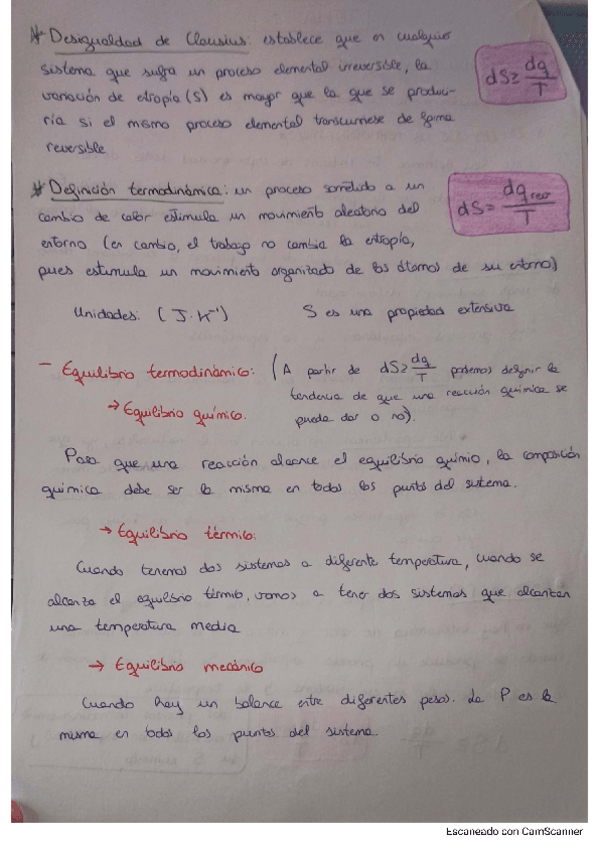 * Desigualdad de Clausius: establece que en cualquier
sistema que sufra un proceso elemental irreversible, la
variación de etropía (S) es mayor que la que se produci-
ría si el mismo proceso elemental transcurriese de forma
reversible.
dS ≥ dq/T
* Definición termodinámica: un proceso sometido a un
cambio de calor estimula un movimiento aleatorio del
entorno (en cambio, el trabajo no cambia la entropía,
pues estimula un movimiento organizado de los átomos de su entorno)
dS = dq rev/T
Unidades: (J·K⁻¹) S es una propiedad extensiva
- Equilibrio termodinámico: (A partir de dS ≥ dq/T podemos definir la
tendencia de que una reacción química se
pueda dar o no).
→ Equilibrio químico.
Para que una reacción alcance el equilibrio químio, la composición
química debe ser la misma en todos los puntos del sistema.
→ Equilibrio térmico:
Cuando tenemos dos sistemas a diferente temperatura, cuando se
alcanza el equilibrio térmio, vamos a tener dos sistemas que alcanzan
una temperatura media
→ Equilibrio mecánico
Cuando hay un balance entre diferentes pesos. La P es la
misma en todos los puntos del sistema.
Escaneado con CamScanner